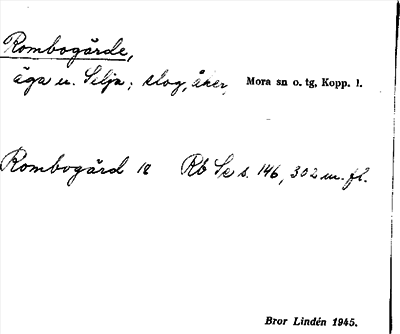 Rombogärde,
äga u. Selja; slog, åker, Mora sn o. tg, Kopp. l.
Rombogärd 18 Rb Se s. 146, 302 m. fl.
Bror Lindén 1945.